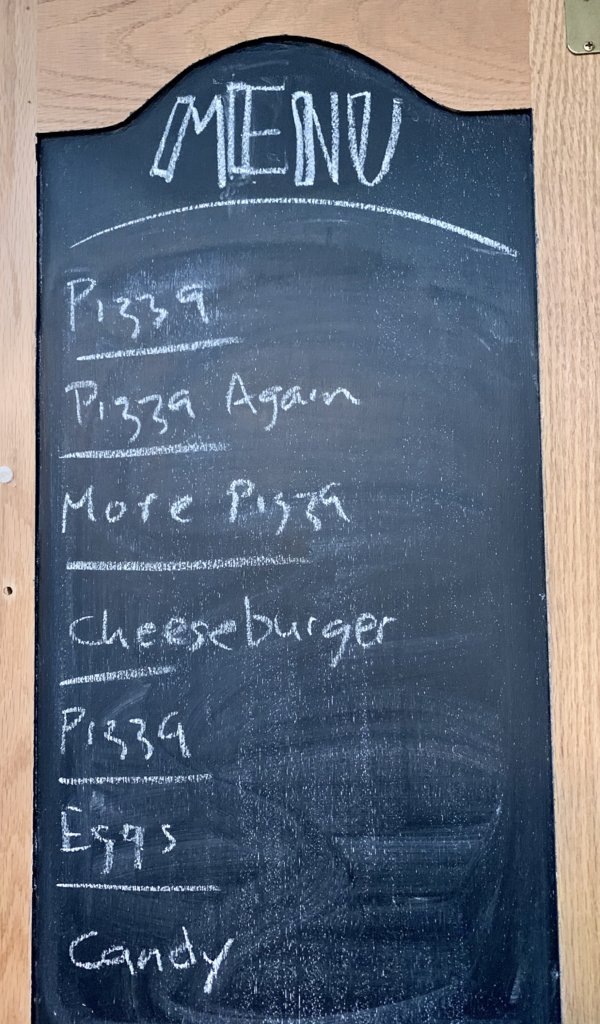 MENU
Pizza
Pizza Again
More Pizza
Cheeseburger
Pizza
Eggs
Candy